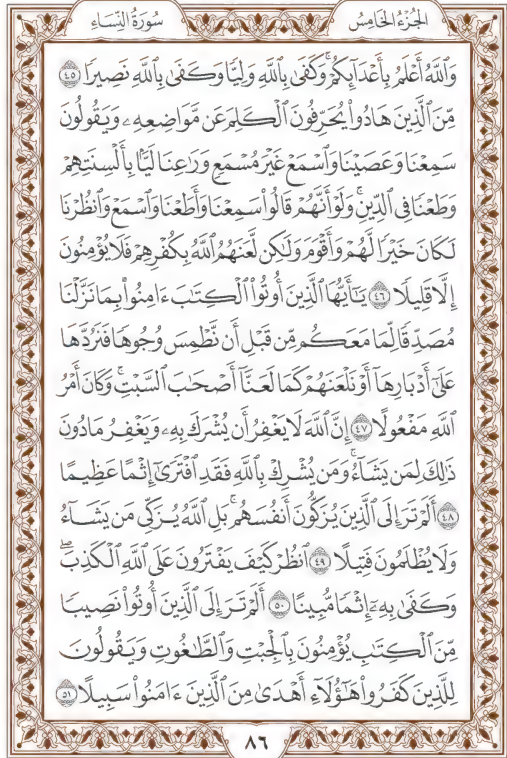 الجُزْءُ الخَامِسُ
سُورَةُ النِّسَاءِ
وَٱللَّهُ أَعْلَمُ بِأَعْدَآئِكُمْ ۚ وَكَفَىٰ بِٱللَّهِ وَلِيًّا وَكَفَىٰ بِٱللَّهِ نَصِيرًا ٤٥
مِّنَ ٱلَّذِينَ هَادُوا۟ يُحَرِّفُونَ ٱلْكَلِمَ عَن مَّوَاضِعِهِۦ وَيَقُولُونَ
سَمِعْنَا وَعَصَيْنَا وَٱسْمَعْ غَيْرَ مُسْمَعٍ وَرَٰعِنَا لَيًّۢا بِأَلْسِنَتِهِمْ
وَطَعْنًا فِى ٱلدِّينِ ۚ وَلَوْ أَنَّهُمْ قَالُوا۟ سَمِعْنَا وَأَطَعْنَا وَٱسْمَعْ وَٱنظُرْنَا
لَكَانَ خَيْرًا لَّهُمْ وَأَقْوَمَ وَلَٰكِن لَّعَنَهُمُ ٱللَّهُ بِكُفْرِهِمْ فَلَا يُؤْمِنُونَ
إِلَّا قَلِيلًا ٤٦ يَٰٓأَيُّهَا ٱلَّذِينَ أُوتُوا۟ ٱلْكِتَٰبَ ءَامِنُوا۟ بِمَا نَزَّلْنَا
مُصَدِّقًا لِّمَا مَعَكُم مِّن قَبْلِ أَن نَّطْمِسَ وُجُوهًا فَنَرُدَّهَا
عَلَىٰٓ أَدْبَارِهَآ أَوْ نَلْعَنَهُمْ كَمَا لَعَنَّآ أَصْحَٰبَ ٱلسَّبْتِ ۚ وَكَانَ أَمْرُ
ٱللَّهِ مَفْعُولًا ٤٧ إِنَّ ٱللَّهَ لَا يَغْفِرُ أَن يُشْرَكَ بِهِۦ وَيَغْفِرُ مَا دُونَ
ذَٰلِكَ لِمَن يَشَآءُ ۚ وَمَن يُشْرِكْ بِٱللَّهِ فَقَدِ ٱفْتَرَىٰٓ إِثْمًا عَظِيمًا
٤٨ أَلَمْ تَرَ إِلَى ٱلَّذِينَ يُزَكُّونَ أَنفُسَهُم ۚ بَلِ ٱللَّهُ يُزَكِّى مَن يَشَآءُ
وَلَا يُظْلَمُونَ فَتِيلًا ٤٩ ٱنظُرْ كَيْفَ يَفْتَرُونَ عَلَى ٱللَّهِ ٱلْكَذِبَ ۖ
وَكَفَىٰ بِهِۦٓ إِثْمًا مُّبِينًا ٥٠ أَلَمْ تَرَ إِلَى ٱلَّذِينَ أُوتُوا۟ نَصِيبًا
مِّنَ ٱلْكِتَٰبِ يُؤْمِنُونَ بِٱلْجِبْتِ وَٱلطَّٰغُوتِ وَيَقُولُونَ
لِلَّذِينَ كَفَرُوا۟ هَٰٓؤُلَآءِ أَهْدَىٰ مِنَ ٱلَّذِينَ ءَامَنُوا۟ سَبِيلًا ٥١
٨٦